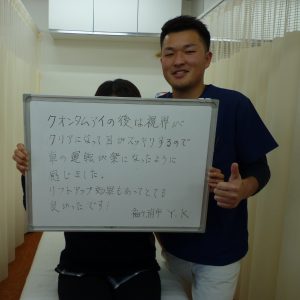 クオンタムアイの後は視界が
クリアになって目がスッキリするので
車の運転が楽になったように
感じました。
リフトアップ効果もあってとても
良かったです！
Y.K